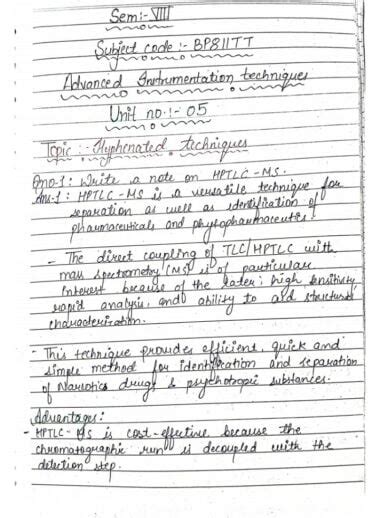 Sem:- VIII
Subject code :- BP811TT
Advanced Instrumentation techniques
Unit no.:- 05
Topic :- Hyphenated techniques
Qno-1: Write a note on HPTLC-MS.
Ans-1: HPTLC-MS is a versatile technique for
separation as well as identification of
pharmaceuticals and phytopharmaceutics.
- The direct coupling of TLC/HPTLC with
mass spectrometry (MS) is of particular
interest because of the later; high sensitivity,
rapid analysis, and ability to aid structural
characterization.
- This technique provides efficient, quick and
simple method for identification and separation
of Narcotics drugs & psychotropic substances.
Advantages:
- HPTLC-MS is cost-effective because the
chromatographic run is decoupled with the
detection step.